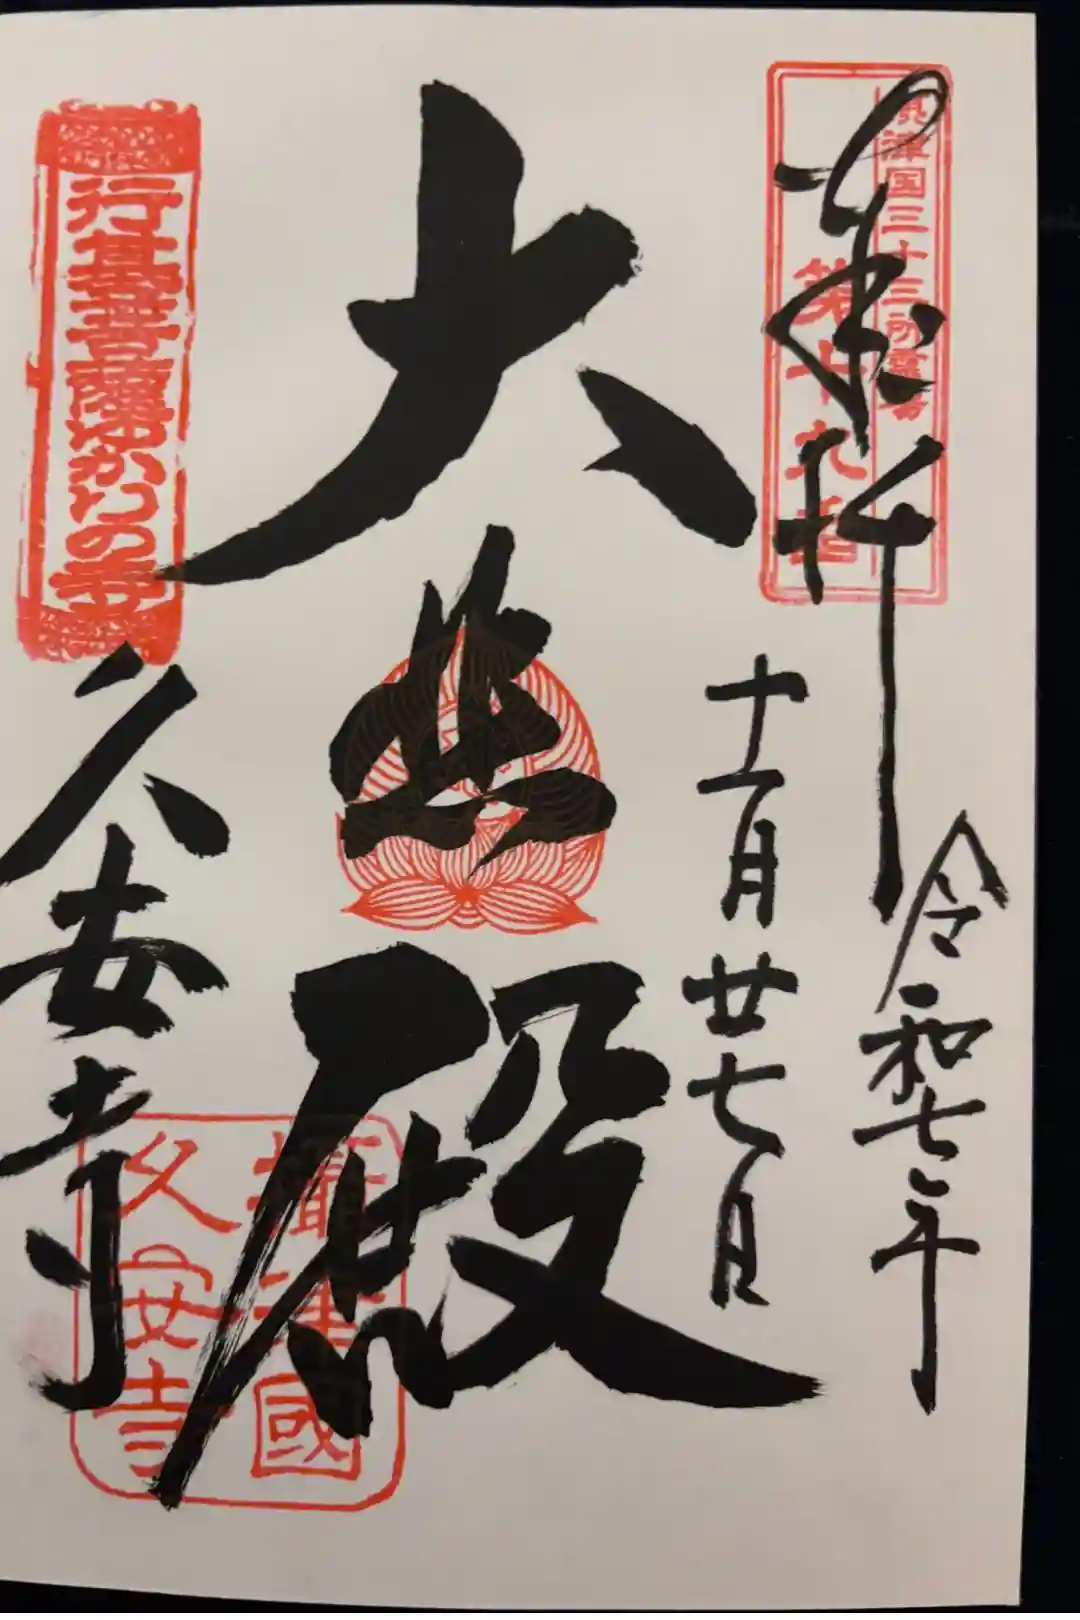 奉拝
摂津国三十三所霊場
第十九番
令和七年
十一月廿七日
大悲殿
行基菩薩ゆかりの寺
久安寺
攝津國
久安寺